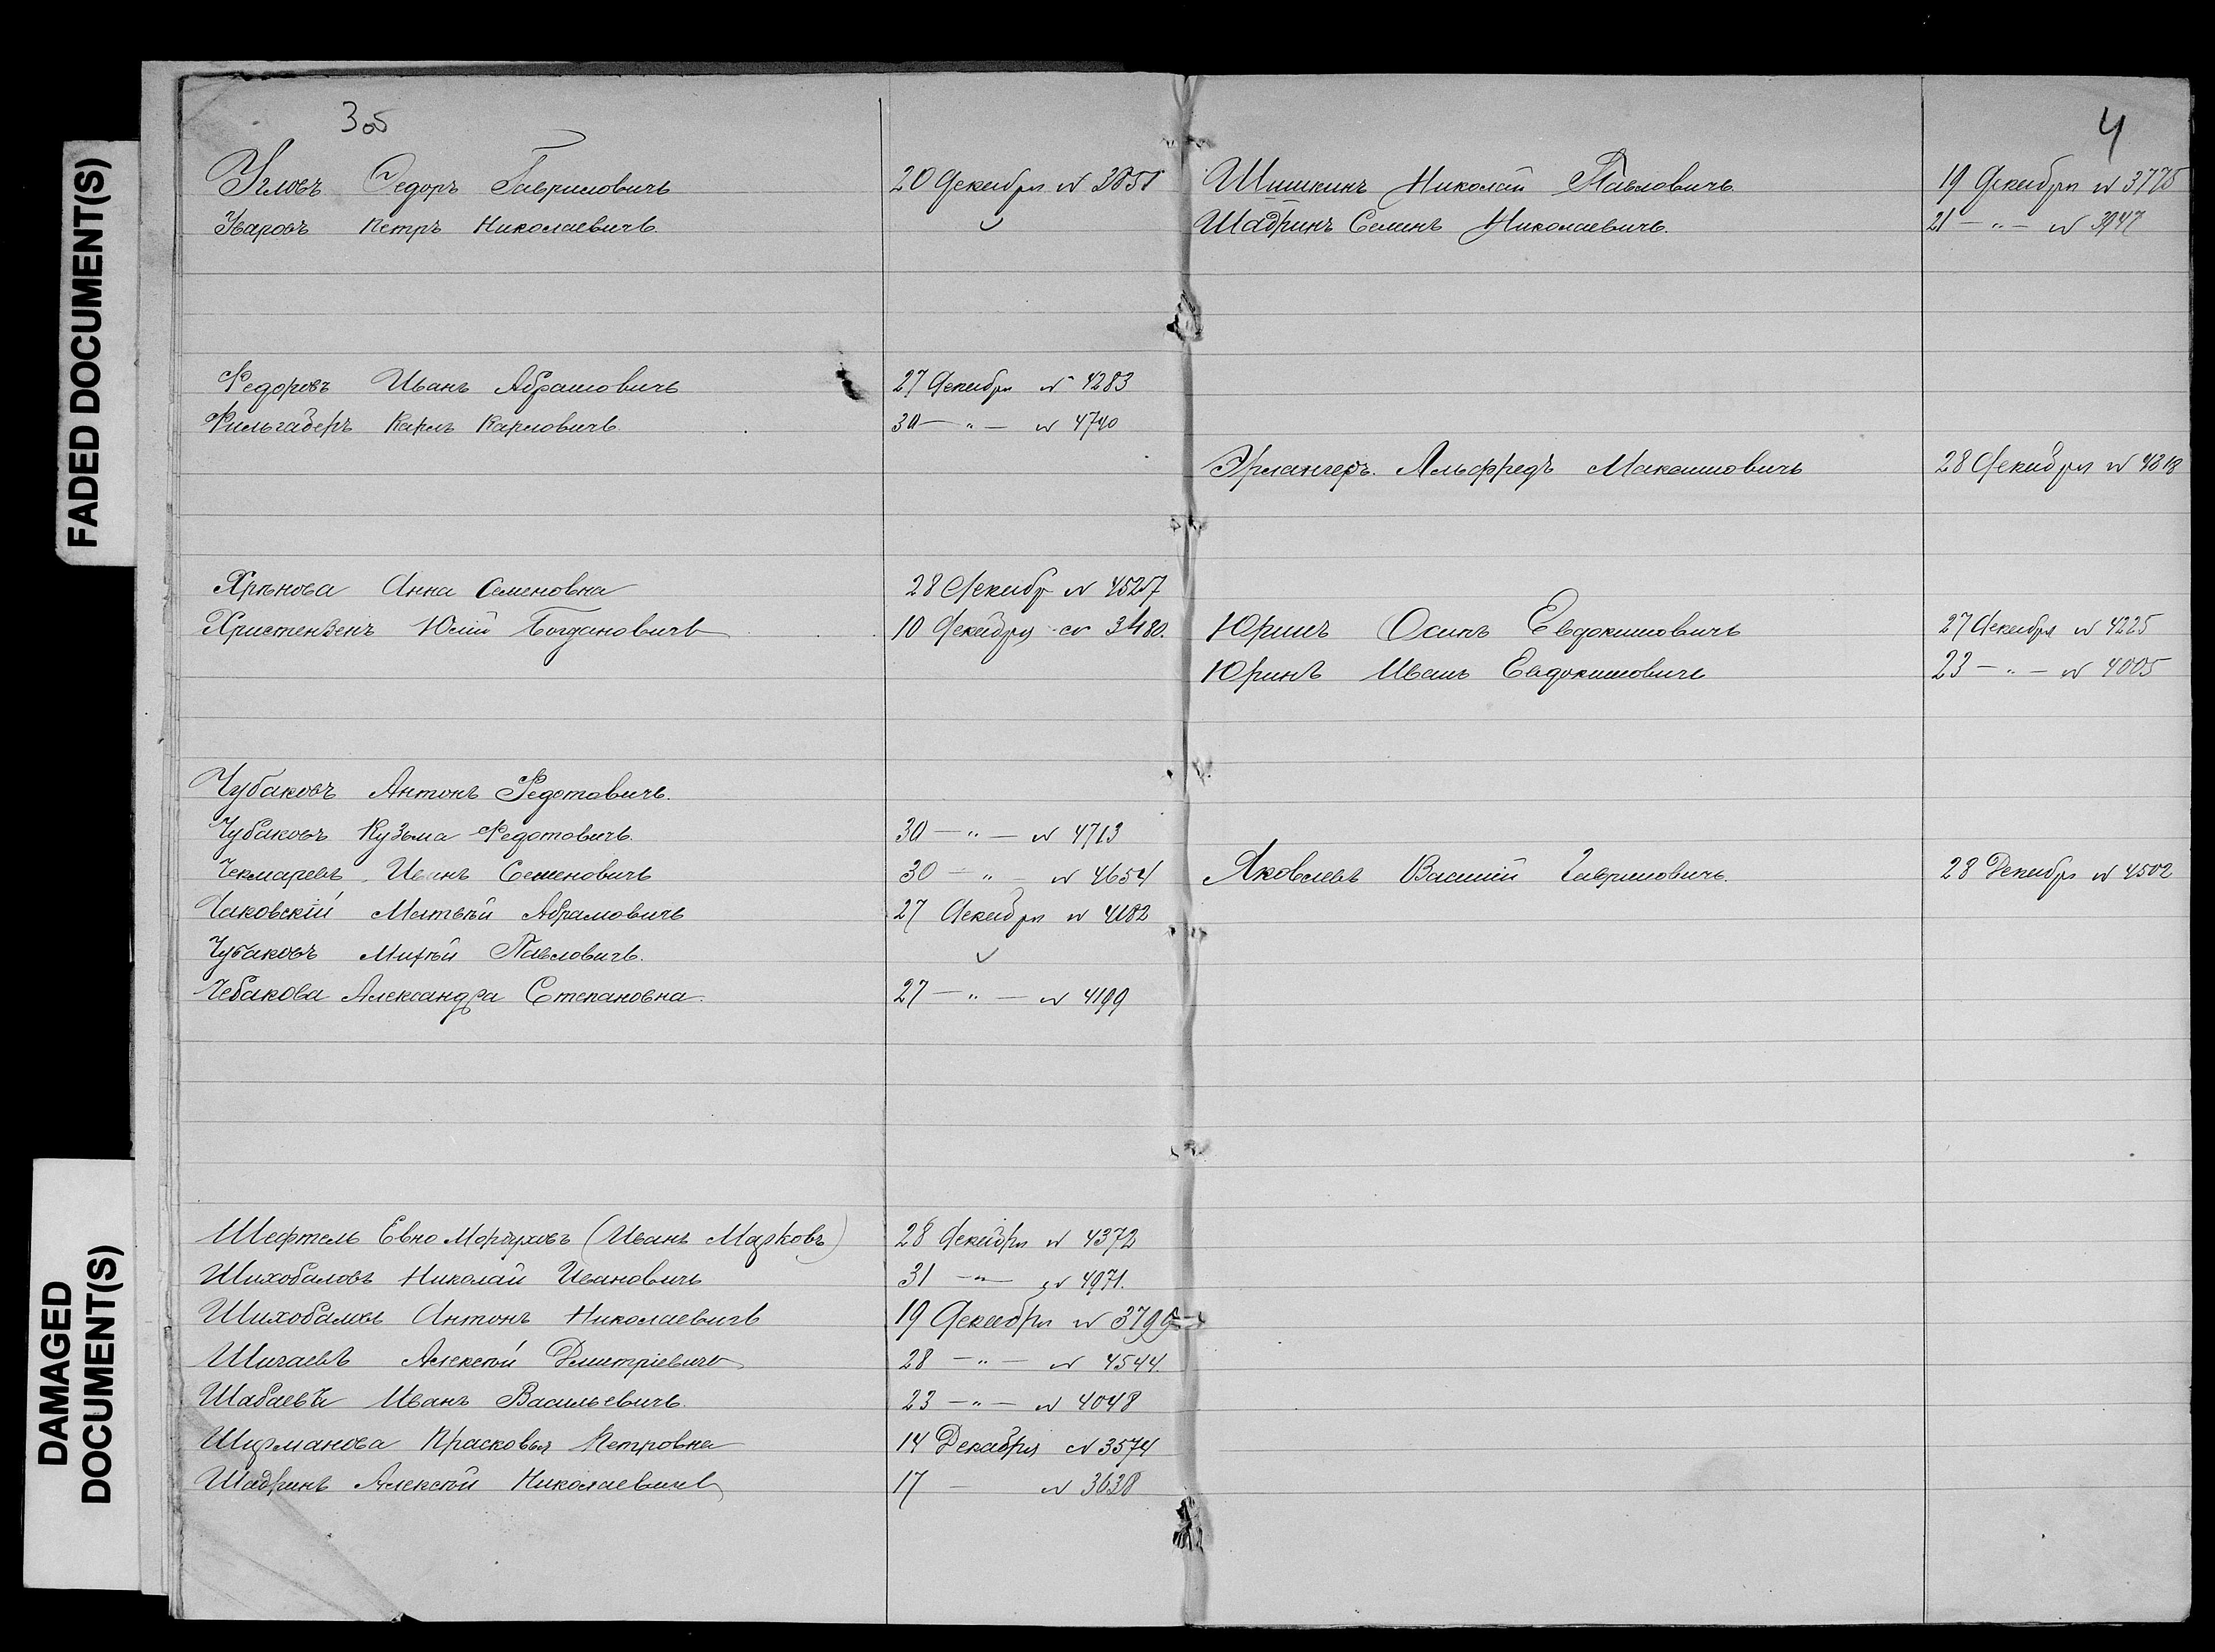 FADED DOCUMENT(S)
DAMAGED
DOCUMENT(S)
3об
Угловъ Ѳедоръ Гавриловичъ 20 Декабря № 3851
Уваровъ Петръ Николаевичъ.
Федоровъ Иванъ Абрамовичъ 27 Декабря № 4283
Фильгаберъ Карлъ Карловичъ 30 — " — № 4740
Хрѣнова Анна Семеновна 28 Декабр № 4527
Христензенъ Юлій Богдановичъ 10 Декабря № 3480.
Чубаковъ Антонъ Федотовичъ.
Чубаковъ Кузьма Федотовичъ. 30 — " — № 4713
Чекмаревъ Иванъ Семеновичъ 30 — " — № 4654
Чаковскій Матвѣй Абрамовичъ 27 Декабря № 4182
Чубаковъ Михѣй Павловичъ.
Чебакова Александра Степановна. 27 — " — № 4199
Шефтель Евно Мордуховъ (Иванъ Марковъ) 28 Декабря № 4372
Шихобаловъ Николай Ивановичъ 31 — " — № 4971.
Шихобаловъ Антонъ Николаевичъ 19 Декабря № 3795
Шичаевъ Алексѣй Дмитріевичъ 28 — " — № 4544.
Шабаевъ Иванъ Васильевичъ. 23 — " — № 4048
Прасковья Петровна 14 Декабря № 3574
Шадринъ Алексѣй Николаевичъ 17 — № 3638
4
Шишкинъ Николай Павловичъ. 19 Декабря № 3775
Шадринъ Семенъ Николаевичъ. 21 — " — № 3947
Эрлангеръ. Альфредъ Максимовичъ 28 Декабря № 4318
Юринъ Осипъ Евдокимовичъ 27 Декабря № 4225
Юринъ Иванъ Евдокимовичъ 23 — " — № 4005
Яковлевъ Василій Гавриловичъ. 28 Декабря № 4502